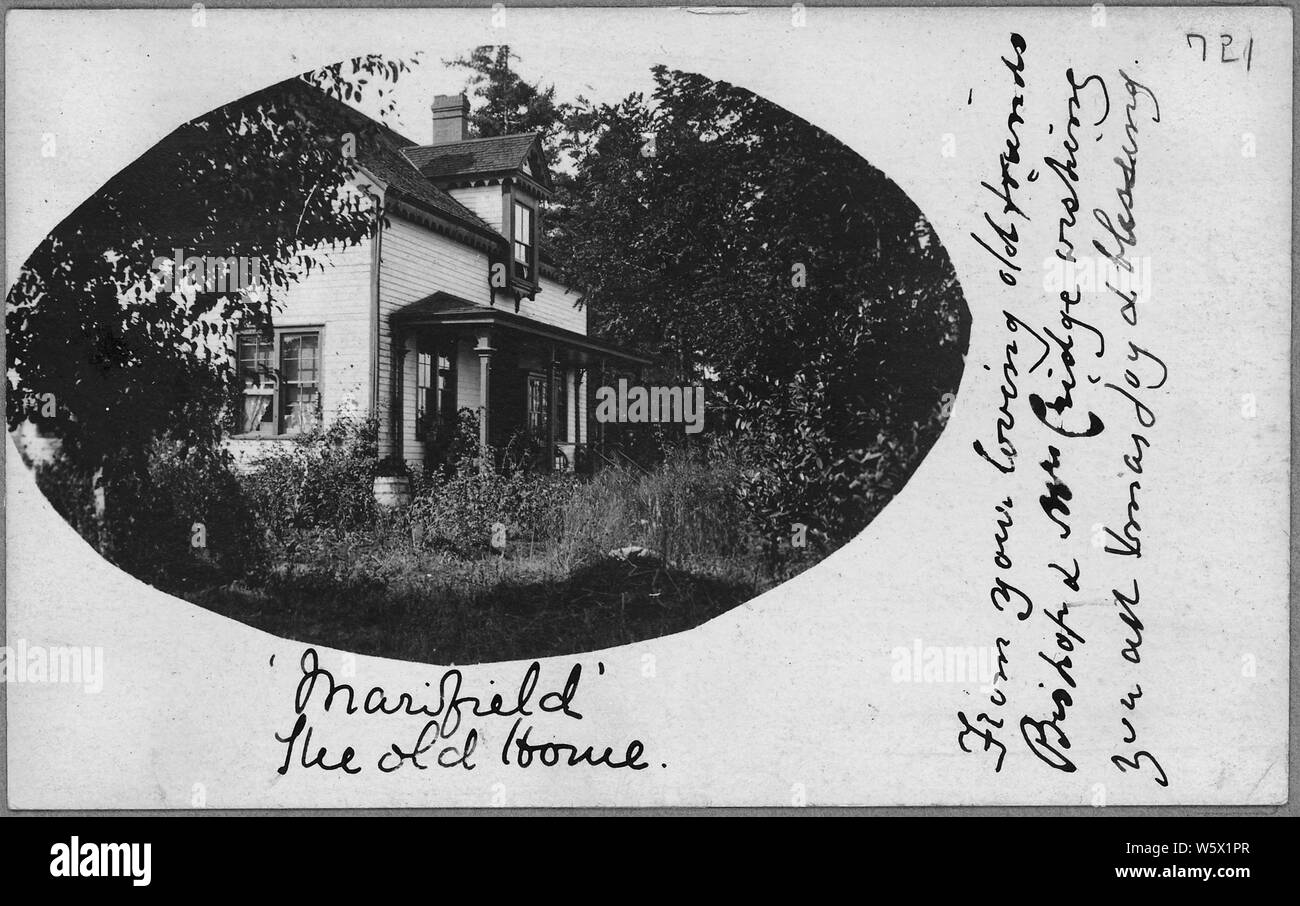 721
'Marifield'
The old Home.
From your loving old friends
Bishop & Mrs Cridge wishing
you all Xmas joy & blessing.
alamy
Image ID: W5X1PR
www.alamy.com